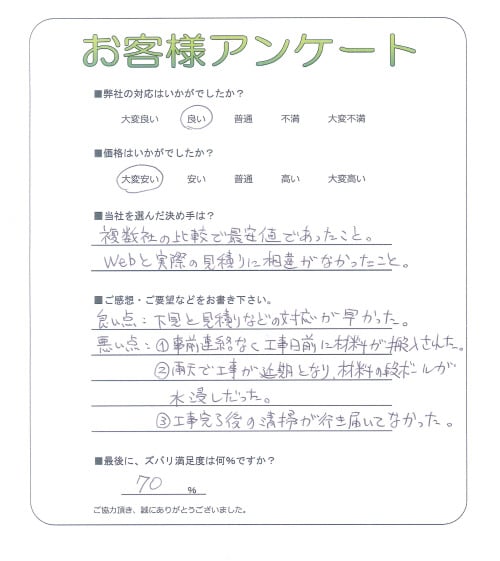 お客様アンケート
■弊社の対応はいかがでしたか？
大変良い 良い 普通 不満 大変不満
■価格はいかがでしたか？
大変安い 安い 普通 高い 大変高い
■当社を選んだ決め手は？
複数社の比較で最安値であったこと。
Webと実際の見積りに相違がなかったこと。
■ご感想・ご要望などをお書き下さい。
良い点：下見と見積りなどの対応が早かった。
悪い点：①事前連絡なく工事日前に材料が搬入された。
②雨天で工事が延期となり、材料の段ボールが
水浸しだった。
③工事完了後の清掃が行き届いてなかった。
■最後に、ズバリ満足度は何%ですか？
70 %
ご協力頂き、誠にありがとうございました。